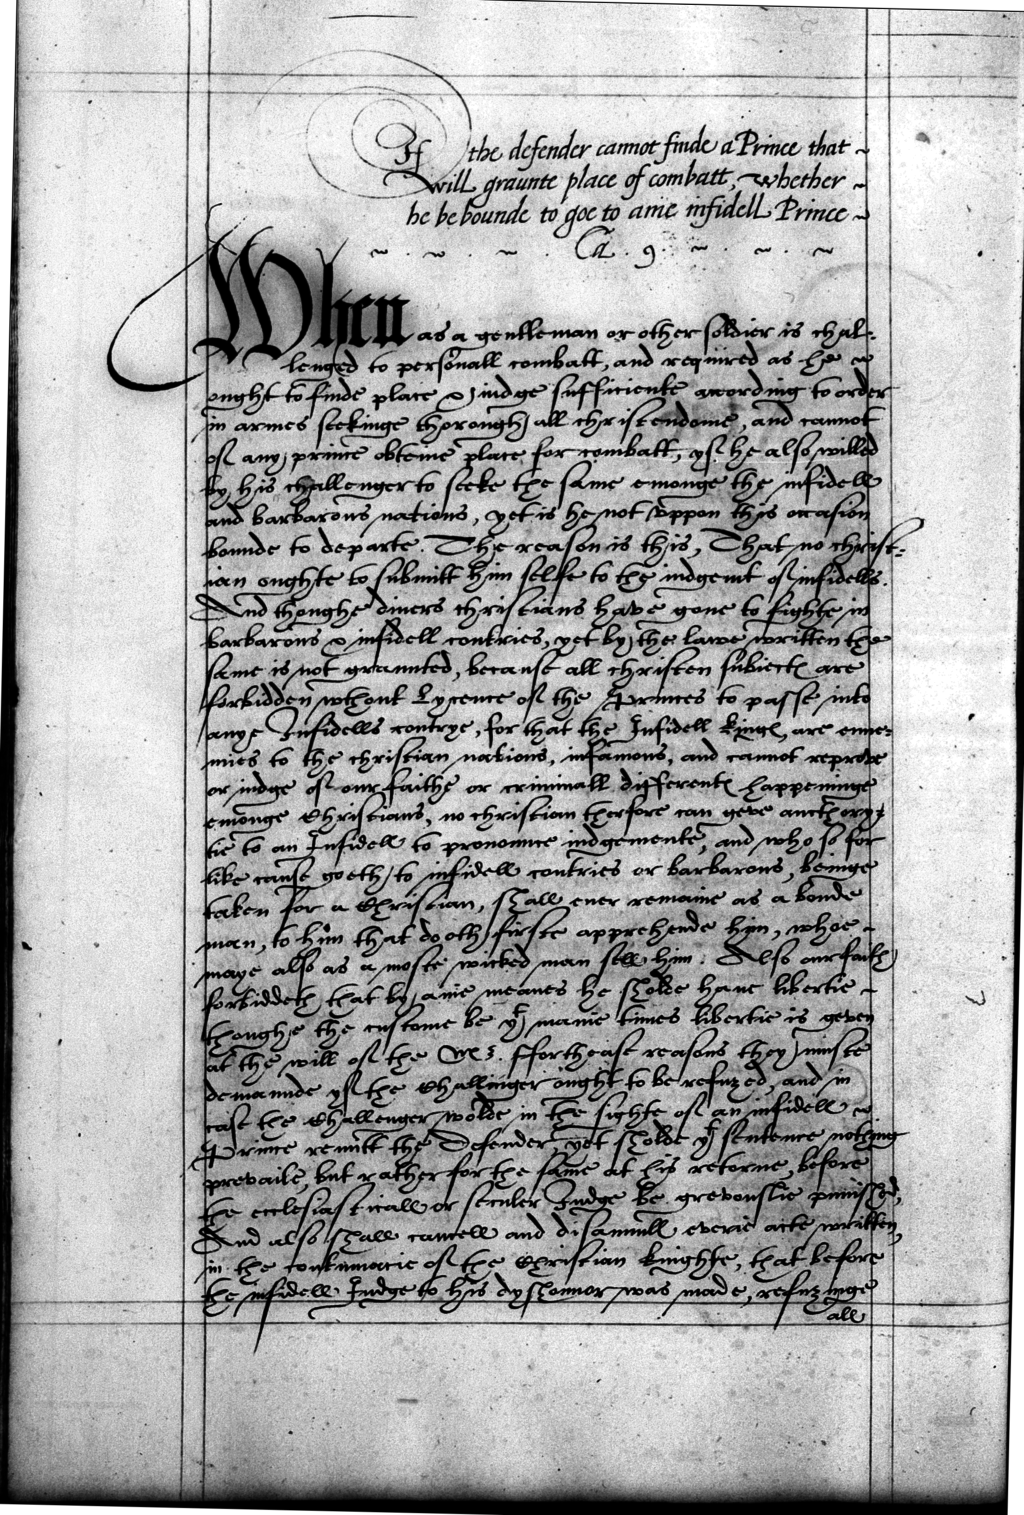 If the defender cannot finde a Prince that ~
will graunte place of combatt, whether ~
he be bounde to goe to anie infidell Prince ~
Ca . 9 .
When as a gentleman or other soldier is chal-
lenged to personall combatt, and required as he
ought to finde place & iudge sufficiente acording to order
in armes seekinge thorough all christendome, and cannot
of any prince obteine place for combatt, yf he also willed
by his challenger to seeke the same emonge the infidell
and barbarous nations, yet is he not vppon this occasion
bounde to departe. The reason is this, That no christ-
ian oughte to submitt him selfe to the iudgemt of infidells.
And thoughe diuers christians have gone to fighte in
barbarous & infidell contries, yet by the lawe written the
same is not graunted, because all christen subiectes are
forbidden wthout Lycence of the Princes to passe into
anye Infidells contrye, for that the Infidell kinges, are enne-
mies to the christian nations, infamous, and cannot reprove
or iudge of our faithe or criminall differentes happeninge
emonge Christians, no christian therfore can geve aucthory-
tie to an Infidell to pronounce iudgemente, and who so for
like cause goeth to infidell contries or barbarous, beinge
taken for a Christian, shall euer remaine as a bonde
man, to him that dooth firste apprehende him, whoe ~
maye also as a moste wicked man sell him. Also our faith
forbiddeth that by anie meanes he sholde haue libertie ~
thoughe the custome be yt manie times libertie is geven
at the will of the . Ffor thease reasons they muste
demaunde yf the Challinger ought to be refuzed, and in
case the Challenger wolde in the sighte of an infidell
Prince remitt the Defender, yet sholde yt sentence nothing
prevaile, but rather for the same at his retorne, before
the ecclesiasticall or seculer Iudge be grevouslie punished,
And also shall cancell and disannull everie acte written,
in the contumacie of the Christian knighte, that before
the infidell Iudge to his dyshonnor was made, refuzinge
all